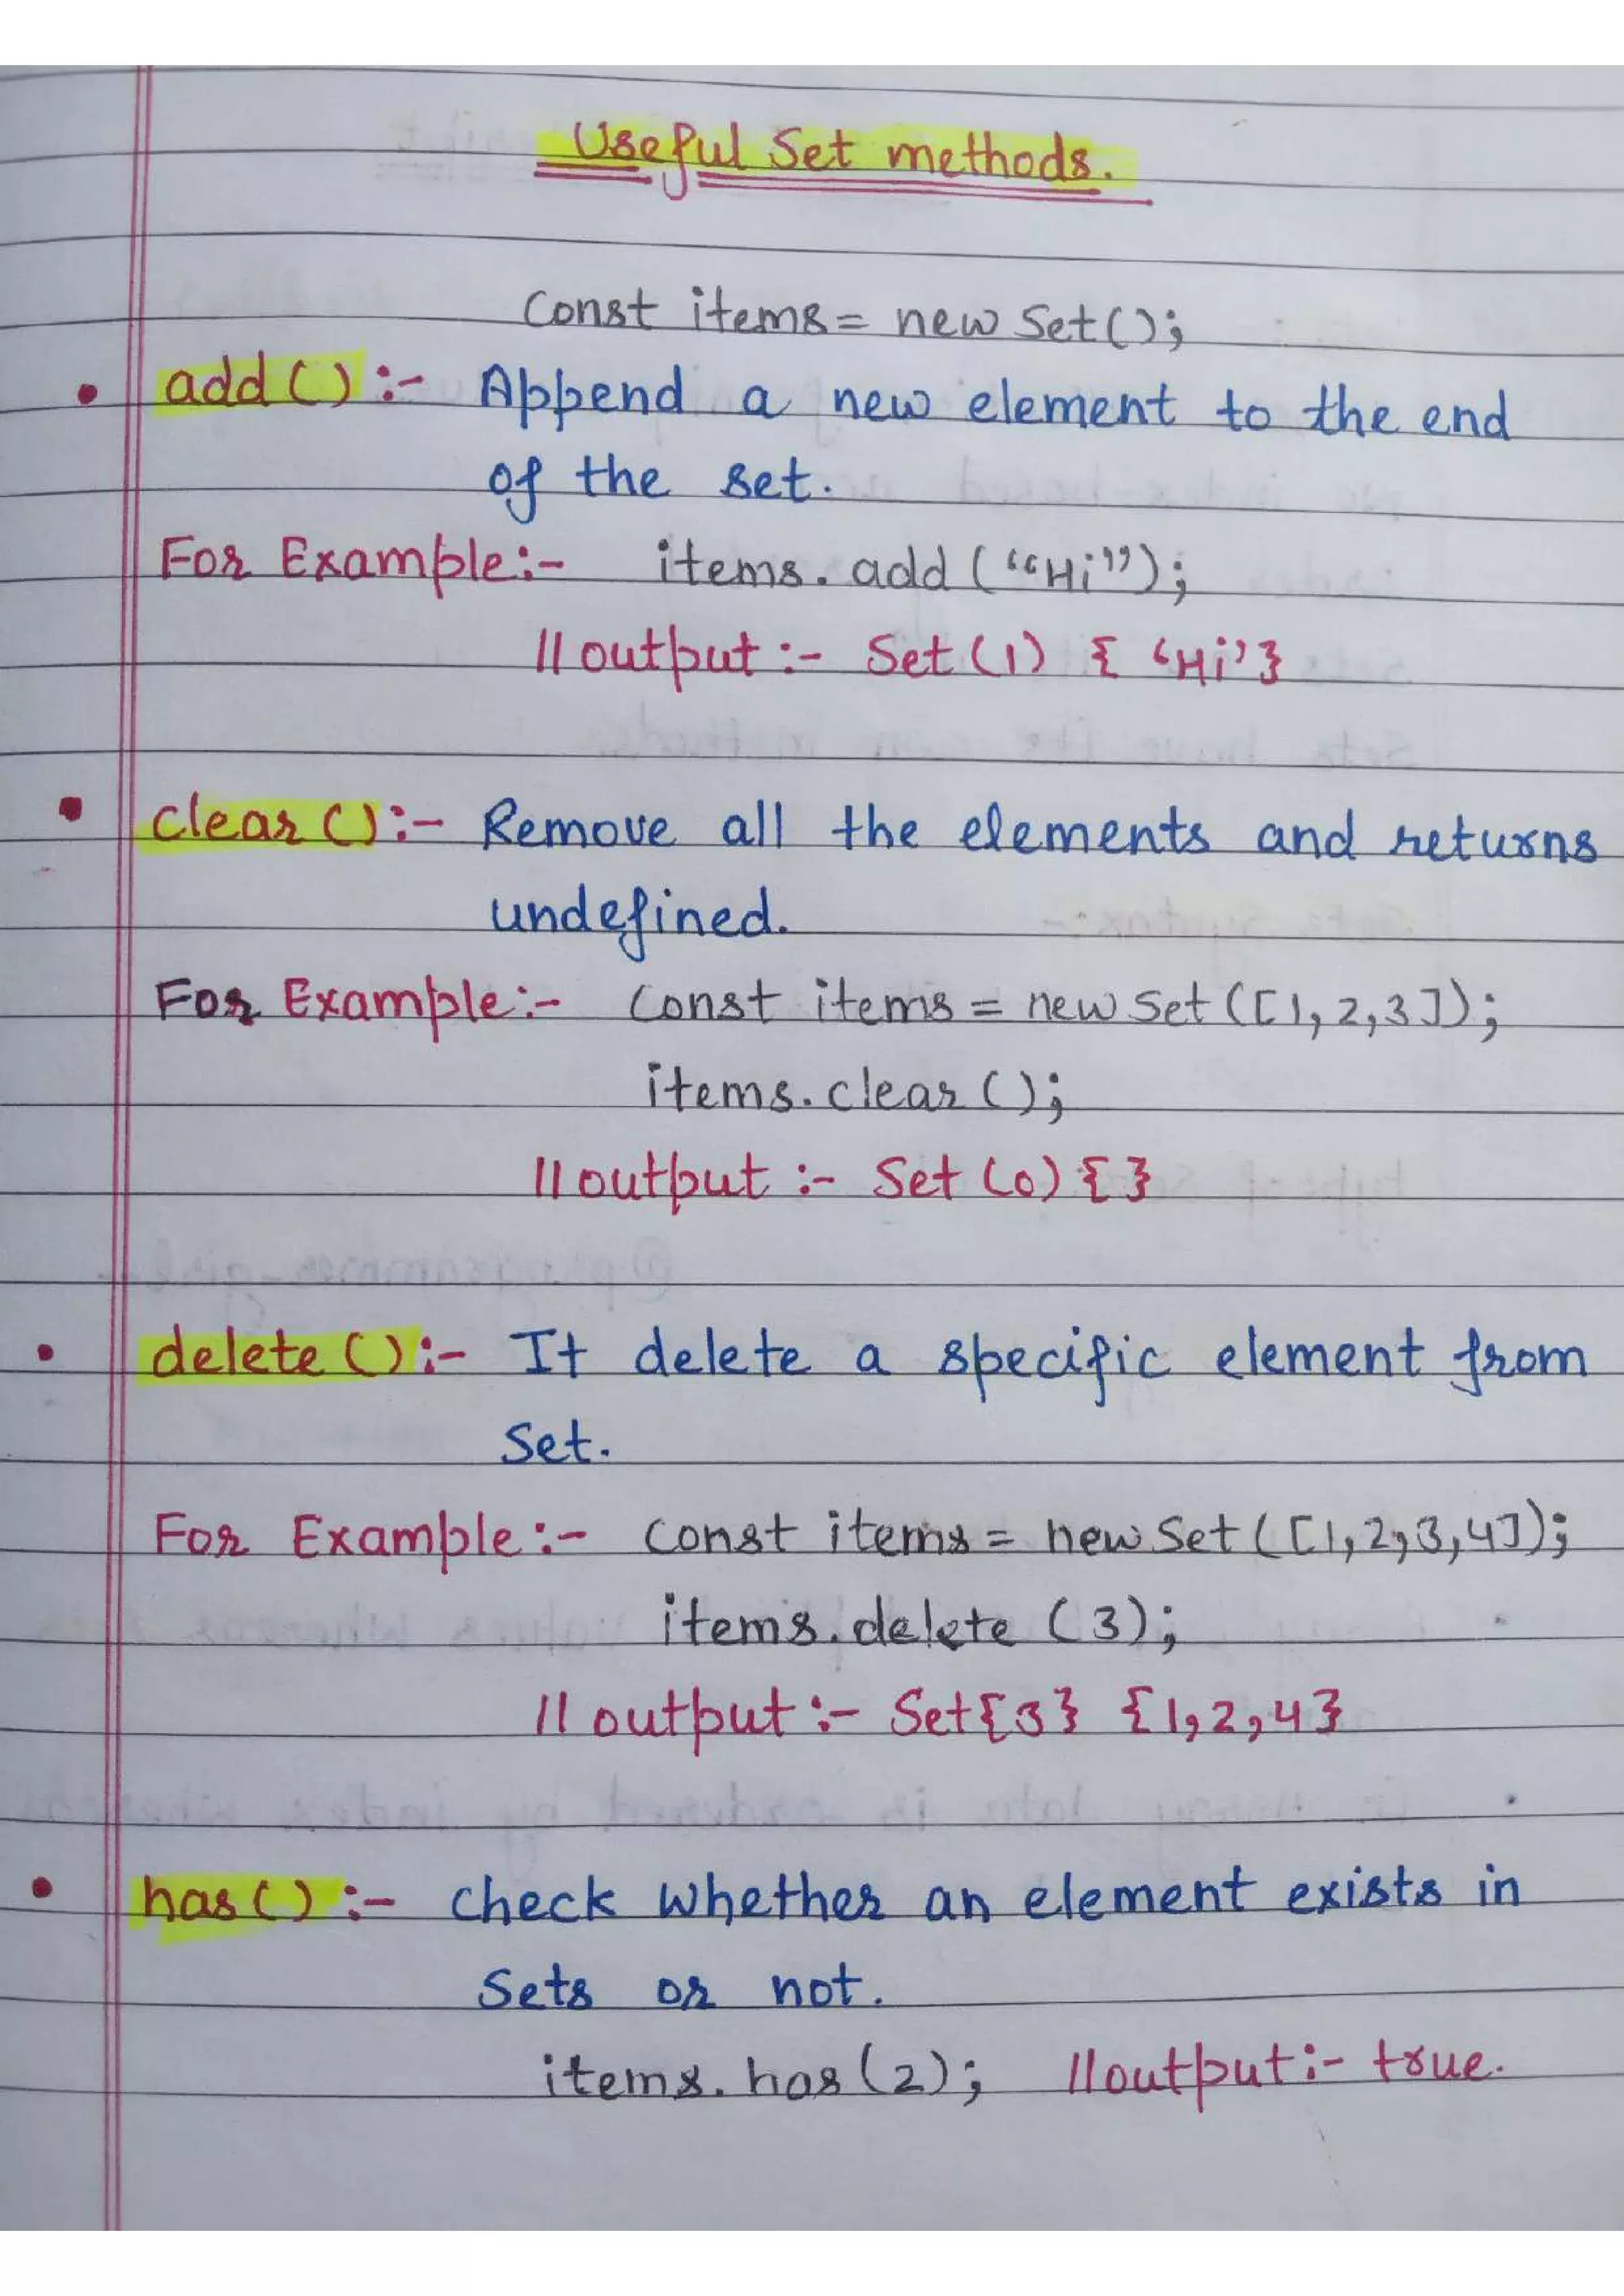 Useful Set methods.
Const items = new Set();
• add() :- Append a new element to the end
of the set.
For Example:- items.add(““Hi””);
//output :- Set(1) { ‘Hi’}
• clear():- Remove all the elements and returns
undefined.
For Example:- Const items = new Set([1, 2, 3]);
items.clear();
//output :- Set(0) { }
• delete():- It delete a specific element from
Set.
For Example:- Const items = new Set([1, 2, 3, 4]);
items.delete (3);
// output :- Set{3} {1, 2, 4}
• has() :- Check whether an element exists in
Sets or not.
items.has(2); //output:- true.